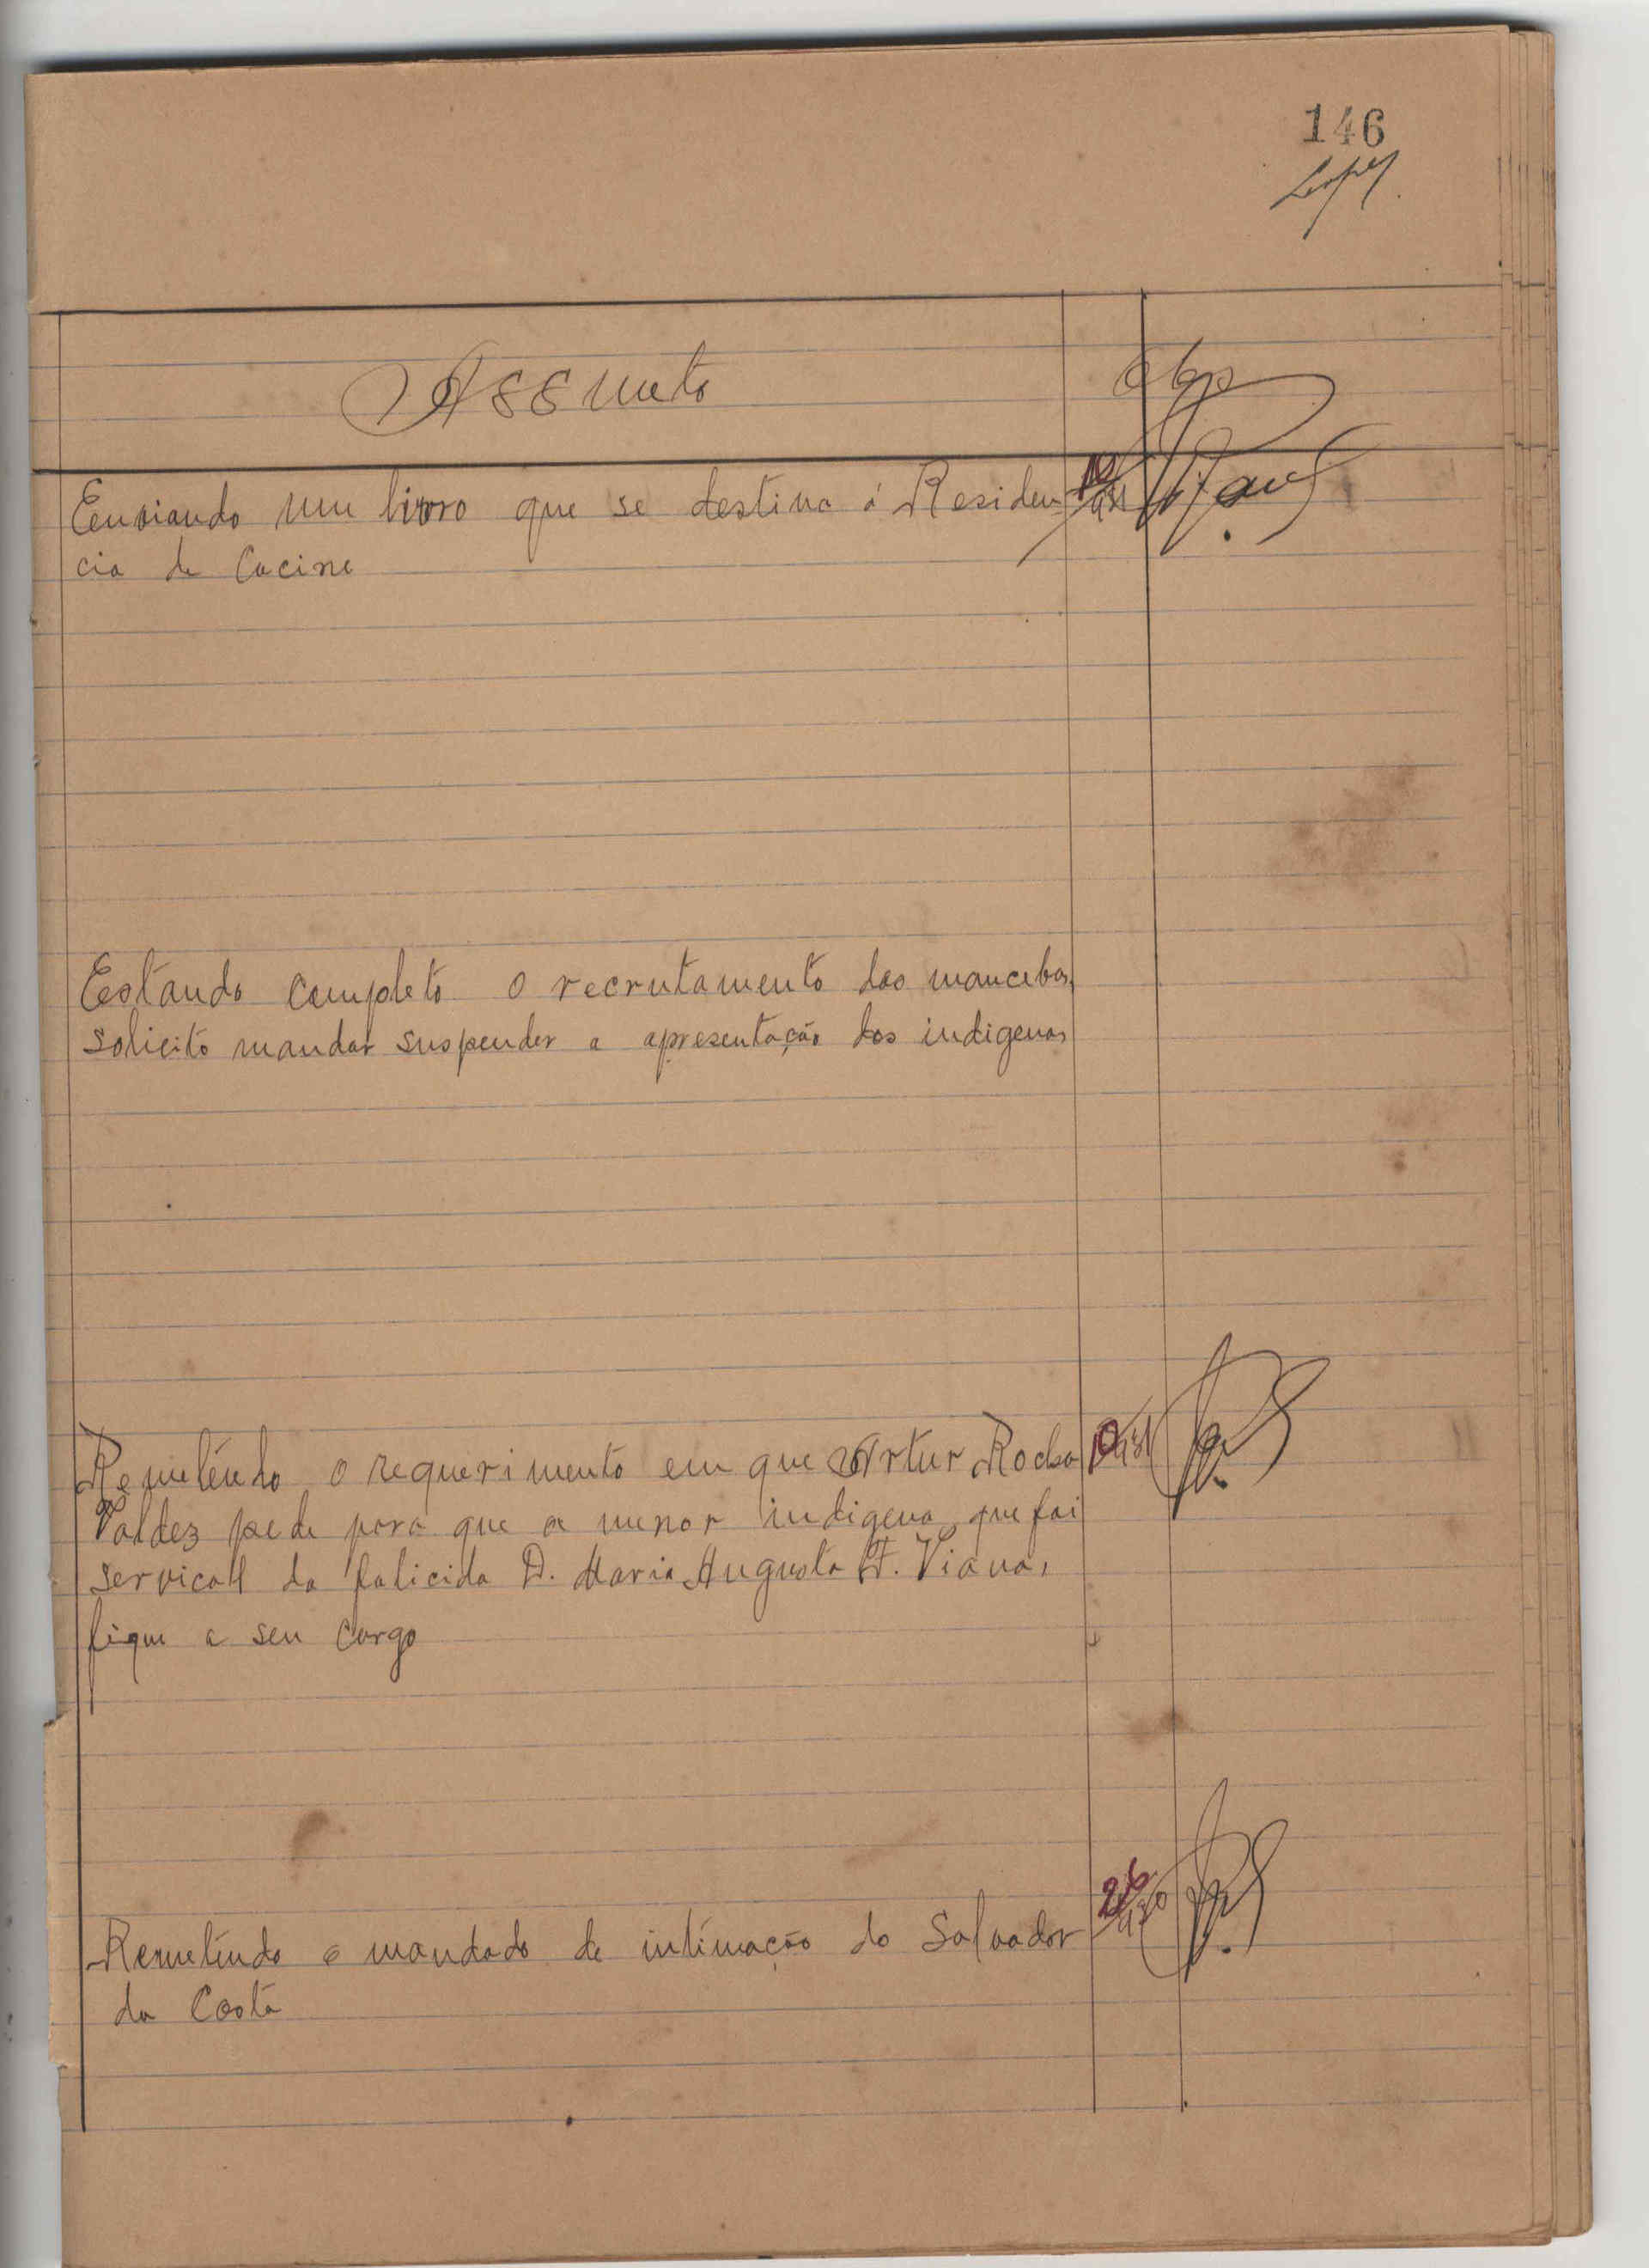 146
Lopes
Assunto
Obs
Eenviando um livro que se destina á Residen
cia de Cacine
Estando completo o recrutamento dos mancebos,
solicito mandar suspender a apresentação dos indigenas
Remetendo o requerimento em que Artur Rocha
Valdez pede para que a menor indigena que foi
serviçall da falicida D. Maria Augusta F. Viana,
fique a seu cargo
26
Remetendo o mandado de intimação do Salvador
da Costa